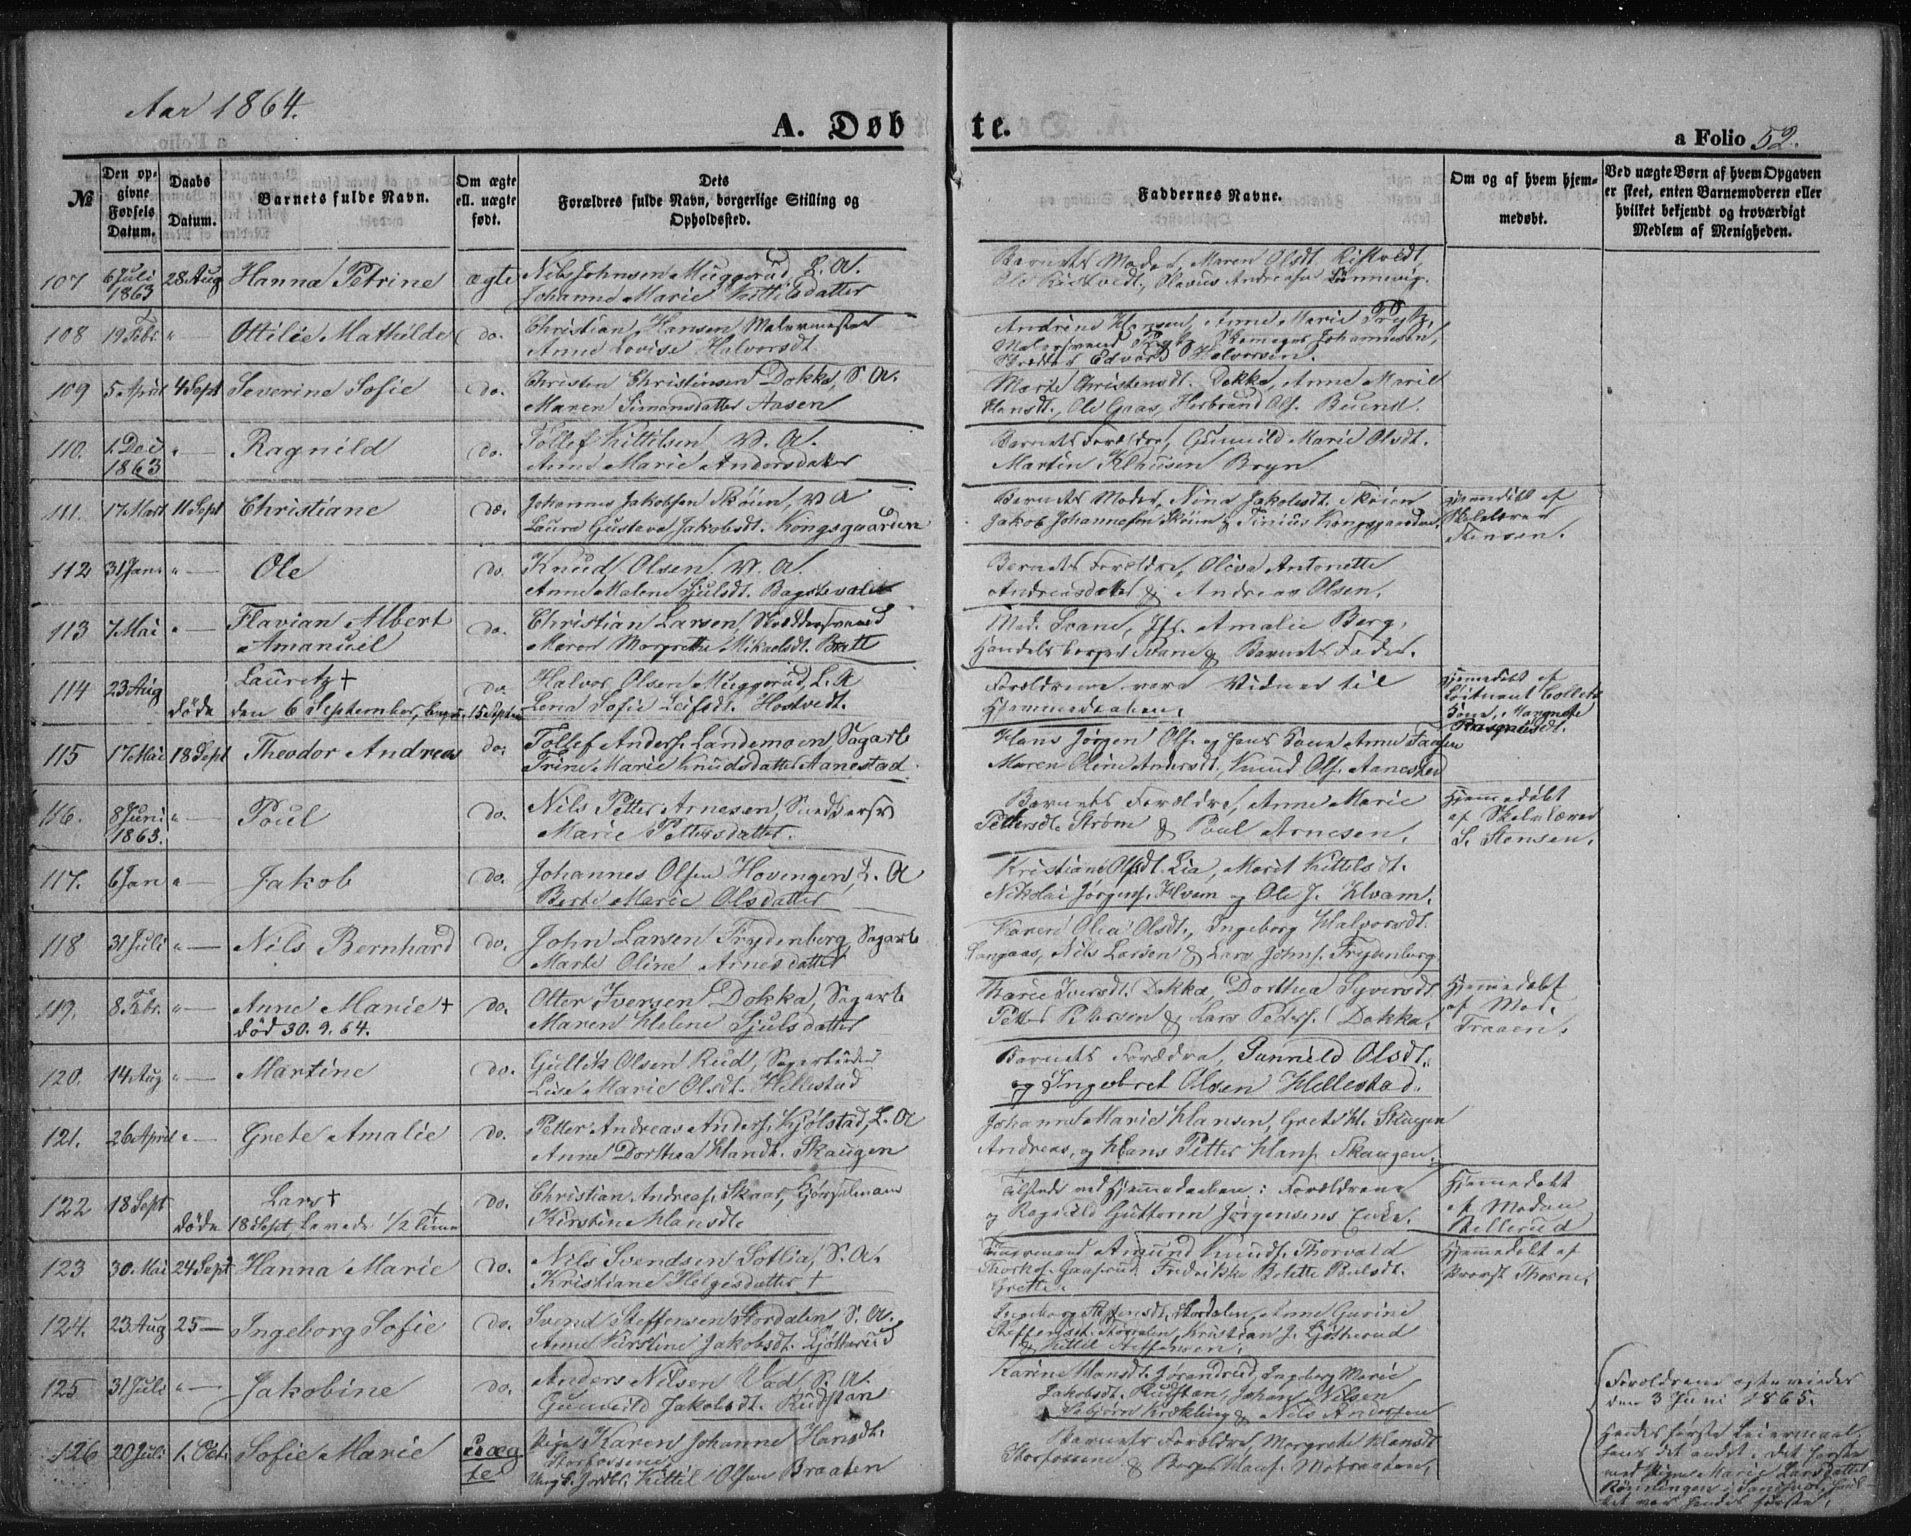 Aar 1864.
A. Døbte.
a Folio 52.
№
Den opgivne Fødsels Datum.
Daabs Datum.
Barnets fulde Navn.
Om ægte ell. uægte født.
Dets Forældres fulde Navn, borgerlige Stilling og Opholdssted.
Faddernes Navne.
Om og af hvem hjemmedøbt.
Ved uægte Børn af hvem Opgaven er skeet, enten Barnemoderen eller hvilket bekjendt og troværdigt Medlem af Menigheden.
107 6 Juli 1863 28 Aug Hanna Petrine ægte Nils Johnsen Muggerud, L. A.
Johanne Marie Kittilsdatter
Barnets Moder, Maren Olsdt. Ristvedt,
Ole Ristvedt, Olavus Andreasen
108 19 Febr. " — Ottilie Mathilde do. Christian Hansen Malermester
Anne Lovise Halvorsdt.
Andrine Hansen, Anne Marie
Johannesen,
Edvard Halvorsen.
109 5 April 4 Sept Severine Sofie do. Christen Christensen Dokka, S. A.
Maren Simonsdatter Aasen
Marte Christensdt. Dokka, Anne Marie
Hansdt., Ole Herbrand Ols.
110. 1. Dec 1863 " — Ragnild do. Tollef Kittilsen V. A.
Anne Marie Andersdatter
Barnets Forældre, Gunnild Marie Olsdt.
Martin Bryn
111. 17 Mart 11 Sept Christiane do. Johannes Jakobsen Skøien, V A
Laura Gustava Jakobsdt. Kongsgaarden
Barnets Moder, Nina Jakobsdt. Skøien
Jakob Johannesen Skøien & Tinius Kongsgaarden
hjemdøbt af
Skolelærer
Stensen.
112 31 Jan. " — Ole do. Knud Olsen V. A.
Anne Malene Sjulsdt.
Barnets Forældre, Oliva Antonette
Andreasdatter & Andreas Olsen.
113 7 Mai " — Flavian Albert
Amanuel do. Christian Larsen Skreddersvend
Maren Margrethe Mikaelsdt. Bratt
Mad. Svane, Jfr. Amalie Berg,
Handelsborger Svane & Barnets Fader.
114 23 Aug Lauritz † do. Halvor Olsen Muggerud, L. A
døde den 6 September, 15 Septem Lena Sofie Leifsdt. Hostvedt.
Forældrene vare Vidner til
Hjemmedaaben.
hjemdøbt af
Løitnant Colletts
Kone, Margrete
115 17 Mai 18 Sept Theodor Andreas do. Tollef Anders. Landemoen Sagarb
Trine Marie Knudsdatter Aanestad
Hans Jørgen Ols. og hans Kone Anne
Maren Oline Andersdt, Knud Ols. Aanestad
116. 8 Juni 1863. " — Poul do. Nils Petter Arnesen,
Marie Pettersdatter.
Barnets Forældre, Anne Marie
Pettersdt. Strøm & Poul Arnesen.
Hjemmedøbt
af Skolelærer
S. Stensen.
117. 6 Jan " — Jakob do. Johannes Olsen Hovengen, L. A
Berte Marie Olsdatter
Kristiane Olsdt. Lia, Marit Kittelsdt.
Nikolai Jørgens. Kham og Ole J. Kham.
118 31 Juli " — Nils Bernhard do. John Larsen Frydenberg, Sagarb
Marte Oline Arnesdatter
Karen Olea Olsdt., Ingeborg Halvorsdt.
Langaas, Nils Larsen & Lars Johns. Frydenberg
119. 8 Febr. " — Anne Marie † do. Otter Iversen Dokka, Sagarb
død 30. 9. 64. Maren Helene Sjulsdatter
Marie Iversdt. Dokka, Dorthea Syversdt
Petter Pettersen & Lars Peders. Dokka.
Hjemmedøbt
af Mad.
Traaen.
120. 14 Aug " — Martine do. Gullik Olsen Rud, Sagarbeider
Lise Marie Olsdt. Hellestad
Barnets Forældre, Gunnild Olsdt.
og Ingebret Olsen Hellestad.
121. 26 April " — Grete Amalie do. Petter Andreas Anders. Kjølstad, L. A
Anne Dorthea Hansdt. Skaugen
Johanne Marie Hansen, Grete H. Skaugen
Andreas, og Hans Petter Hans. Skaugen.
122 18 Sept Lars † do. Christian Andreas. Skaar, Kjørselmand
døde 18 Sept, Levede 1/2 time † Kirstine Hansdt.
Tilstede ved Hjemmedaaben: Forældrene
og Ragnild Guttorm Jørgensens Enke.
Hjemmedøbt
af Madam
Kellerud
123 30. Mai 24 Sept Hanna Marie do. Nils Svendsen Sotlia, S. A.
Kristiane Helgesdatter †
Amund Knuds. Thorvald
Fredrikke Bolette Poulsdt.
Grette.
Hjemmedøbt af
Provst Thorne.
124. 23 Aug 25 — Ingeborg Sofie do. Svend Steffensen Stordalen S. A.
Anne Kirstine Jakobsdt. Ljøtterud
Ingeborg Steffensdt. Stordalen, Anne Gurine
Steffensdt. Stordalen, Kristian J. Ljøtterud
& Kittil Steffensen.
125 31 Juli " — Jakobine do. Anders Nilsen Vad S. A.
Gunnild Jakobsdt. Rudstan
Karine Hansdt. Jørandrud, Ingeborg Marie
Jakobsdt. Rudstan, Johan Nilsen
Krækling & Nils Andersen
126 20 Juli 1. Oct. Sofie Marie uægte Pige Karen Johanne Hansdt.
Storfossene
Ung. Kittil Olsen Braaten
Barnets Forældre, Margrete Hansdt
Storfossene & Borger Hans. Mobraaten.
Forældrene ægteviedes
den 3 Juni 1865.
Hendes første Leiermaal,
hans det andet. Det første
med Pigen Marie Larsdatter
Rønningen i Sandsvær,
det var hendes første.